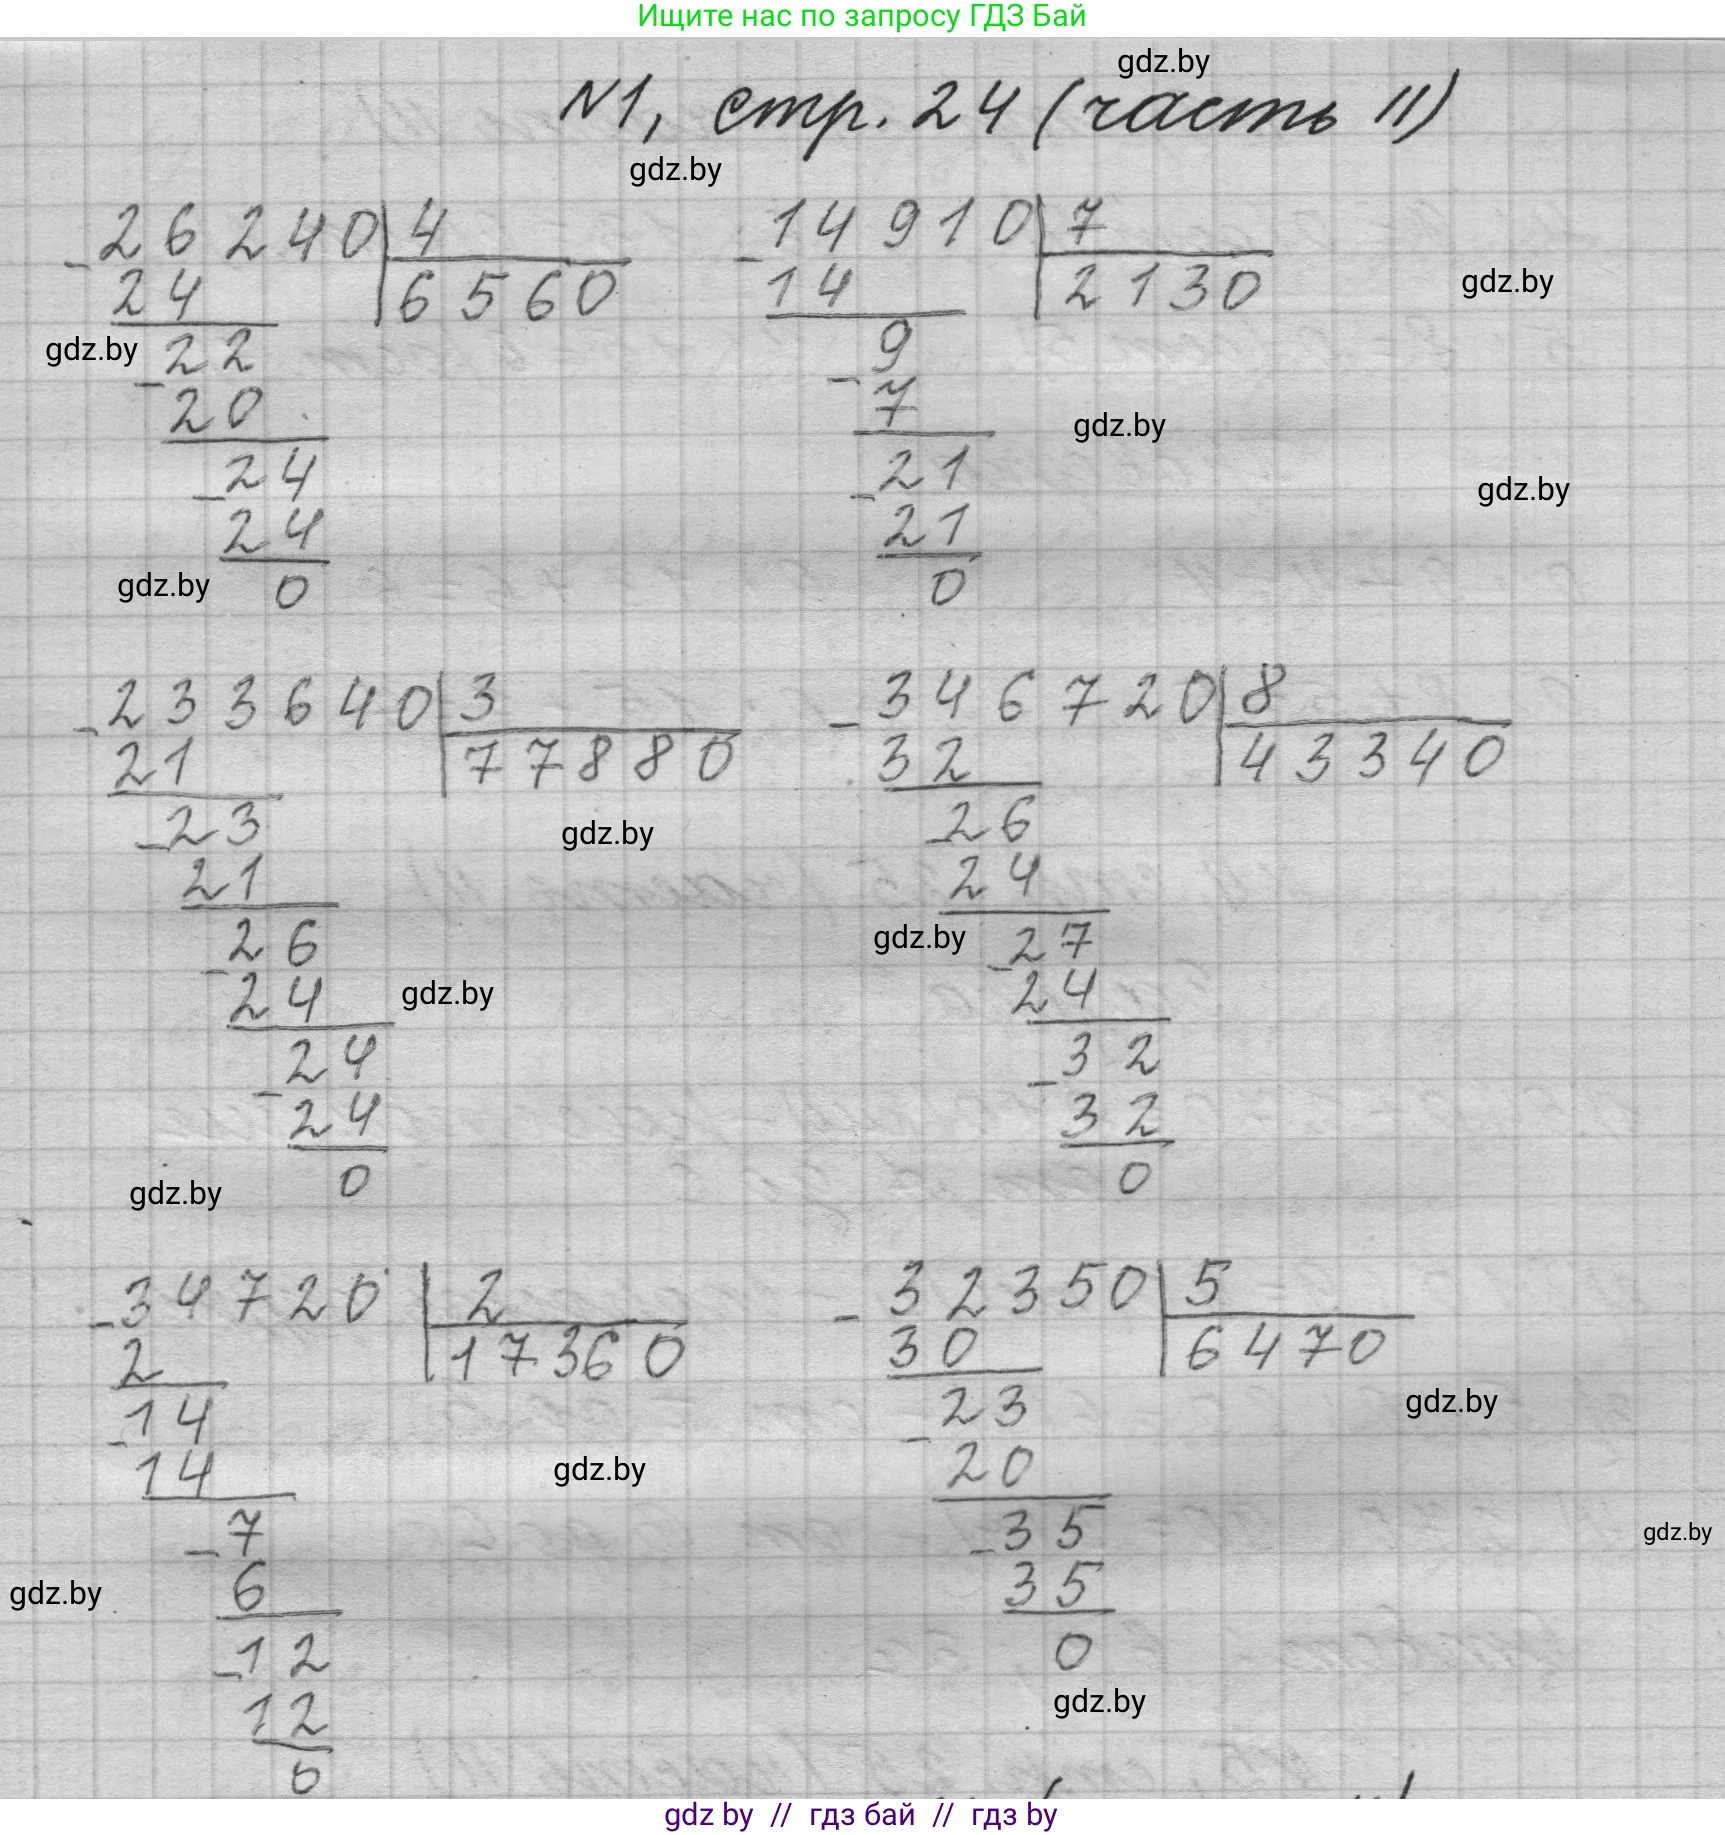 Ищите нас по запросу ГДЗ Бай
gdz.by
N1, стр. 24 (часть II)
gdz.by
26240 4 14910 7
24 6560 14 2130
gdz.by
gdz.by 22 9
20 7
gdz.by
24 21
gdz.by
24 21
gdz.by 0 0
233640 3 346720 8
21 77880 32 43340
23 26
gdz.by
21 24
26 27
gdz.by
24 24
gdz.by
24 32
24 32
0 0
gdz.by
34720 2 32350 5
2 17360 30 6470
14 23
gdz.by
14 20
gdz.by
7 35
gdz.by
6 35
gdz.by
12 0
12
gdz.by
0
gdz by // гдз бай // гдз by